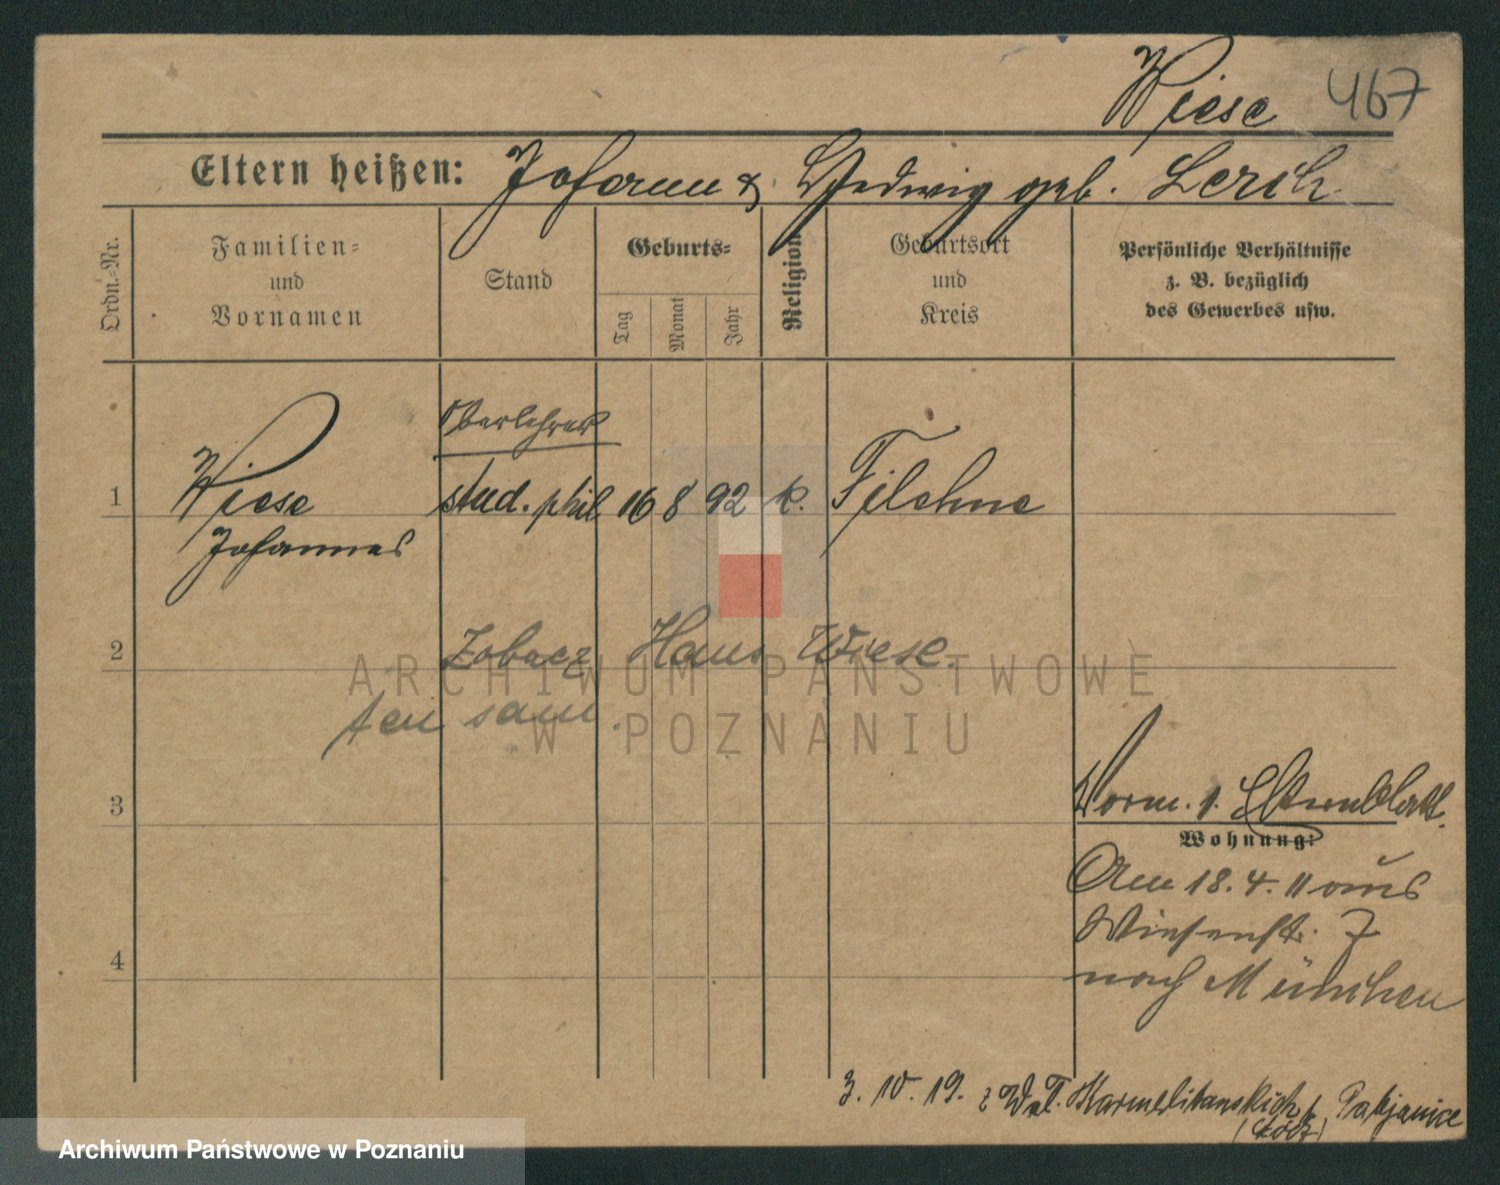 Wiese 467
Eltern heißen: Johann & Hedwig geb. Lerch
Ordn.-Nr.
Familien-
und
Vornamen
Stand
Geburts-
Tag
Monat
Jahr
Religion
Geburtsort
und
Kreis
Persönliche Verhältnisse
z. B. bezüglich
des Gewerbes usw.
Oberlehrer
1 Wiese stud. phil. 16 8 92 k. Filehne
Johannes
2 Zobacz Hans Wiese.
ten sam.
ARCHIWUM PAŃSTWOWE
W POZNANIU
3 Vorm. s. Elternblatt.
Wohnung:
Am 18. 4. 11 aus
Wiesenstr. 7
4 nach München
3. 10. 19. z Wał. Karmelitanskich, Pabjanice
(Łódź)
Archiwum Państwowe w Poznaniu